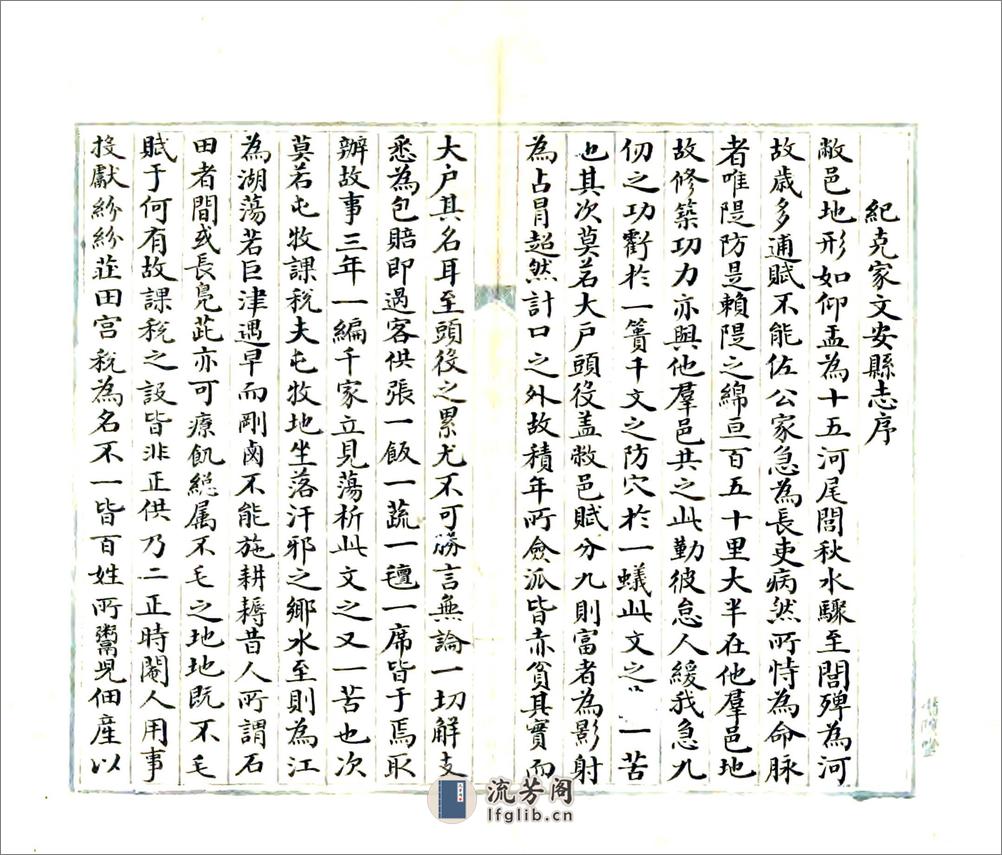 紀克家文安縣志序
敝邑地形如仰盂為十五河尾閭秋水驟至閭殫為河
故歲多逋賦不能佐公家急為長吏病然所恃為命脉
者唯隄防是賴隄之綿亘百五十里大半在他羣邑地
故修築功力亦與他羣邑共之此勤彼怠人緩我急九
仞之功虧於一簣千丈之防穴於一蟻此文之一苦
也其次莫若大戶頭役盖敝邑賦分九則富者為影射
為占冒超然計口之外故積年所僉派皆赤貧其實而
大戶其名耳至頭役之累尤不可勝言無論一切解支
悉為包賠即過客供張一飯一蔬一氊一席皆于焉取
辦故事三年一編千家立見蕩析此文之又一苦也次
莫若屯牧課稅夫屯牧地坐落汙邪之鄉水至則為江
為湖蕩若巨津遇旱而剛鹵不能施耕耨昔人所謂石
田者間或長鳧茈亦可療飢縂属不毛之地地既不毛
賦于何有故課稅之設皆非正供乃二正時閹人用事
投獻紛紛莊田宮稅為名不一皆百姓所鬻兒佃産以
流芳阁
lfglib.cn